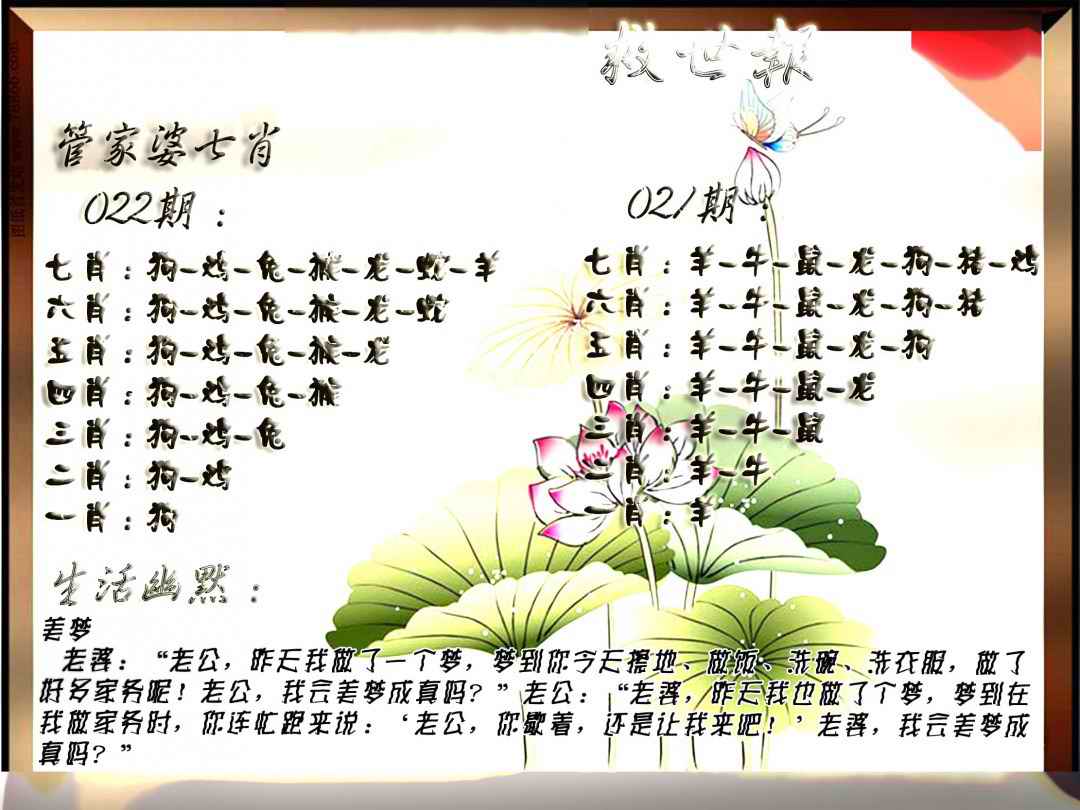 救世報
管家婆七肖
022期：
七肖：狗-鸡-兔-猴-龙-蛇-羊
六肖：狗-鸡-兔-猴-龙-蛇
五肖：狗-鸡-兔-猴-龙
四肖：狗-鸡-兔-猴
三肖：狗-鸡-兔
二肖：狗-鸡
一肖：狗
021期：
七肖：羊-牛-鼠-龙-狗-猪-鸡
六肖：羊-牛-鼠-龙-狗-猪
五肖：羊-牛-鼠-龙-狗
四肖：羊-牛-鼠-龙
三肖：羊-牛-鼠
二肖：羊-牛
一肖：羊
生活幽默：
美梦
老婆：“老公，昨天我做了一个梦，梦到你今天擦地、做饭、洗碗、洗衣服，做了
好多家务呢！老公，我会美梦成真吗？”老公：“老婆，昨天我也做了个梦，梦到在
我做家务时，你连忙跑来说：‘老公，你歇着，还是让我来吧！’老婆，我会美梦成
真吗？”